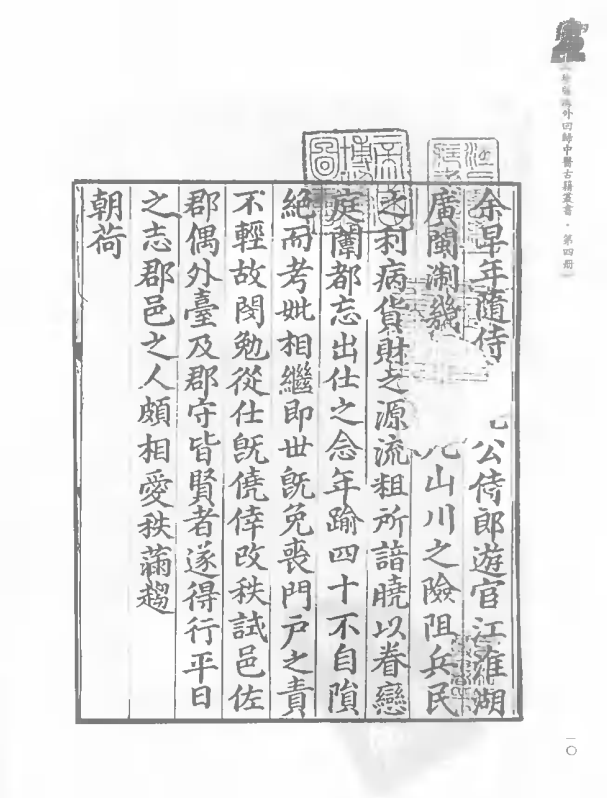 海外回歸中醫古籍叢書·第四冊
余早年隨侍 公侍郎遊官江淮湖
廣閩淛幾 山川之險阻兵民
之利病貨財之源流粗所諳曉以眷戀
庭闈都忘出仕之念年踰四十不自隕
絶而考妣相繼即世旣免喪門戶之責
不輕故閔勉從仕旣僥倖改秩試邑佐
郡偶外臺及郡守皆賢者遂得行平日
之志郡邑之人頗相愛秩滿趨
朝荷
一〇